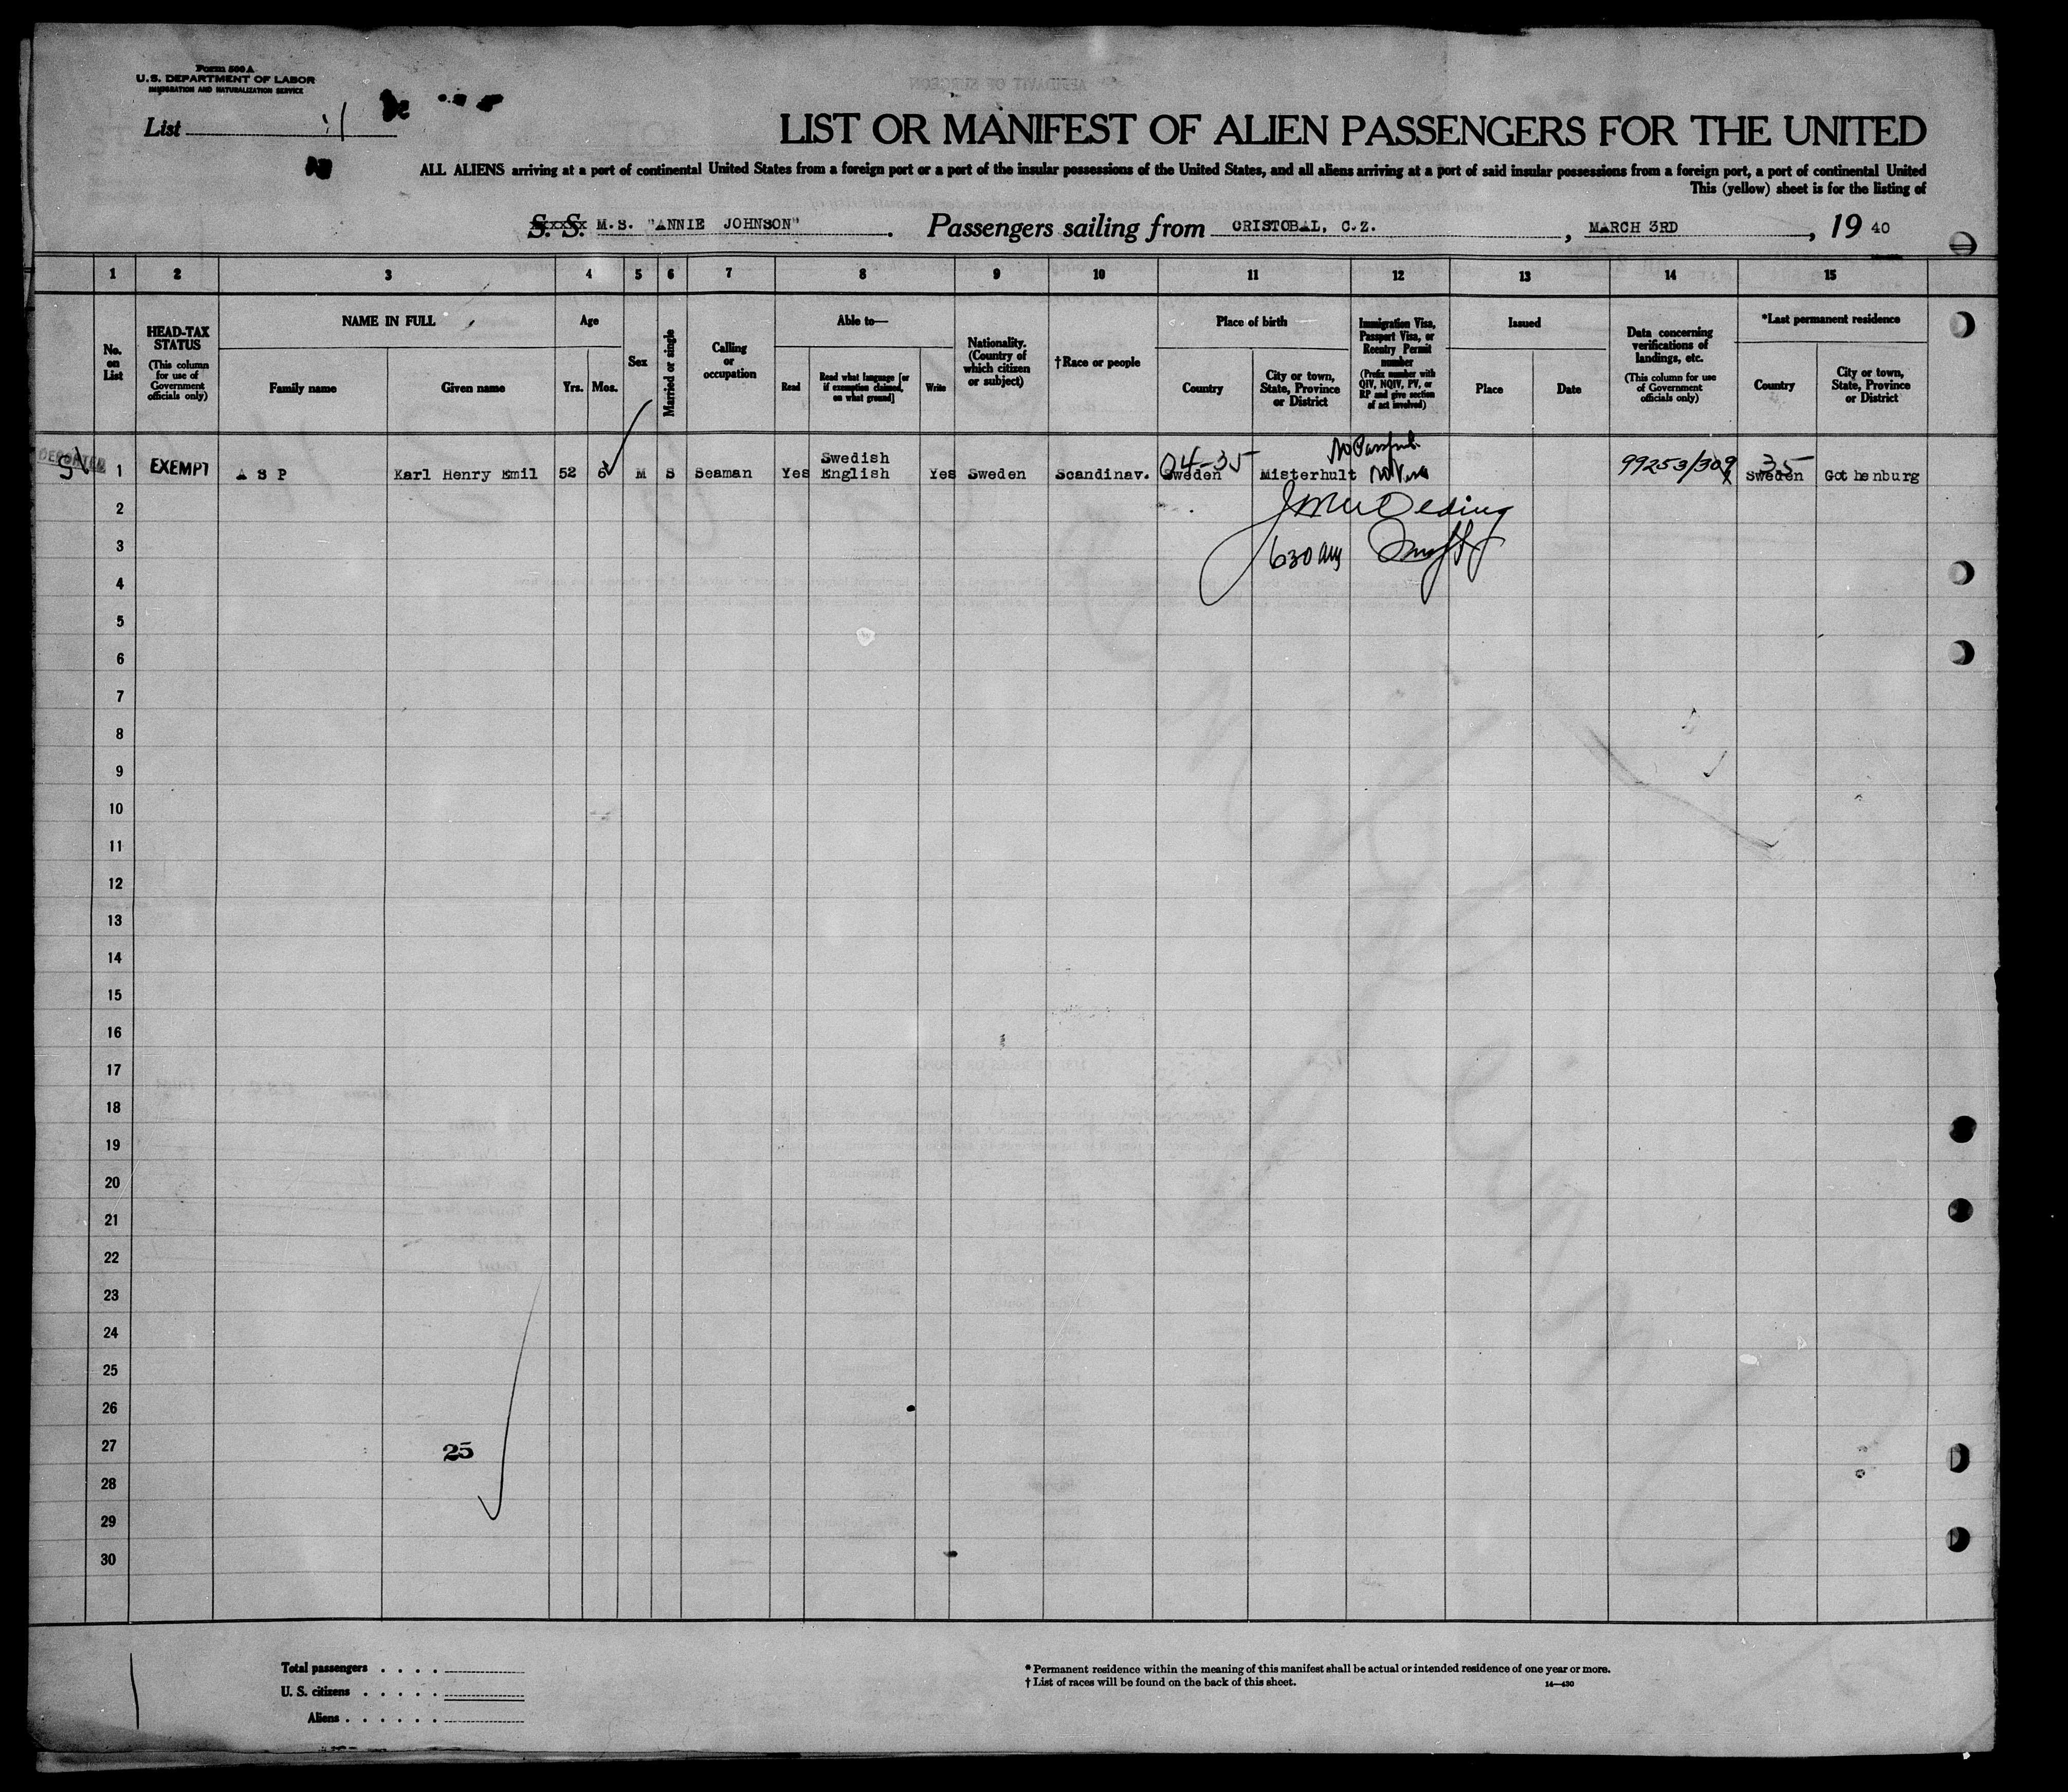 Form 500 A
U.S. DEPARTMENT OF LABOR
IMMIGRATION AND NATURALIZATION SERVICE
List
LIST OR MANIFEST OF ALIEN PASSENGERS FOR THE UNITED
ALL ALIENS arriving at a port of continental United States from a foreign port or a port of the insular possessions of the United States, and all aliens arriving at a port of said insular possessions from a foreign port, a port of continental United
This (yellow) sheet is for the listing of
S. S. M.S. "ANNIE JOHNSON". Passengers sailing from CRISTOBAL, C.Z., MARCH 3RD, 19 40
1 2 3 4 5 6 7 8 9 10 11 12 13 14 15
No. on List
HEAD-TAX STATUS
(This column for use of Government officials only)
NAME IN FULL
Family name
Given name
Age
Yrs.
Mos.
Sex
Married or single
Calling or occupation
Able to—
Read
Read what language [or if exemption claimed, on what ground]
Write
Nationality. (Country of which citizen or subject)
†Race or people
Place of birth
Country
City or town, State, Province or District
Immigration Visa, Passport Visa, or Reentry Permit number
(Prefix number with QIV, NQIV, PV, or RP and give section of act involved)
Issued
Place
Date
Data concerning verifications of landings, etc.
(This column for use of Government officials only)
*Last permanent residence
Country
City or town, State, Province or District
DEPORTED
1 EXEMPT A S P Karl Henry Emil 52 6 M S Seaman Yes Swedish English Yes Sweden Scandinav. Sweden Misterhult Sweden Gothenburg
04-35
No Passport
No Visa
99253/309
35
2
3
630 am
4
5
6
7
8
9
10
11
12
13
14
15
16
17
18
19
20
21
22
23
24
25
26
27
25
28
29
30
Total passengers . . . .
U. S. citizens . . . . .
Aliens . . . . . .
* Permanent residence within the meaning of this manifest shall be actual or intended residence of one year or more.
† List of races will be found on the back of this sheet.
14—430